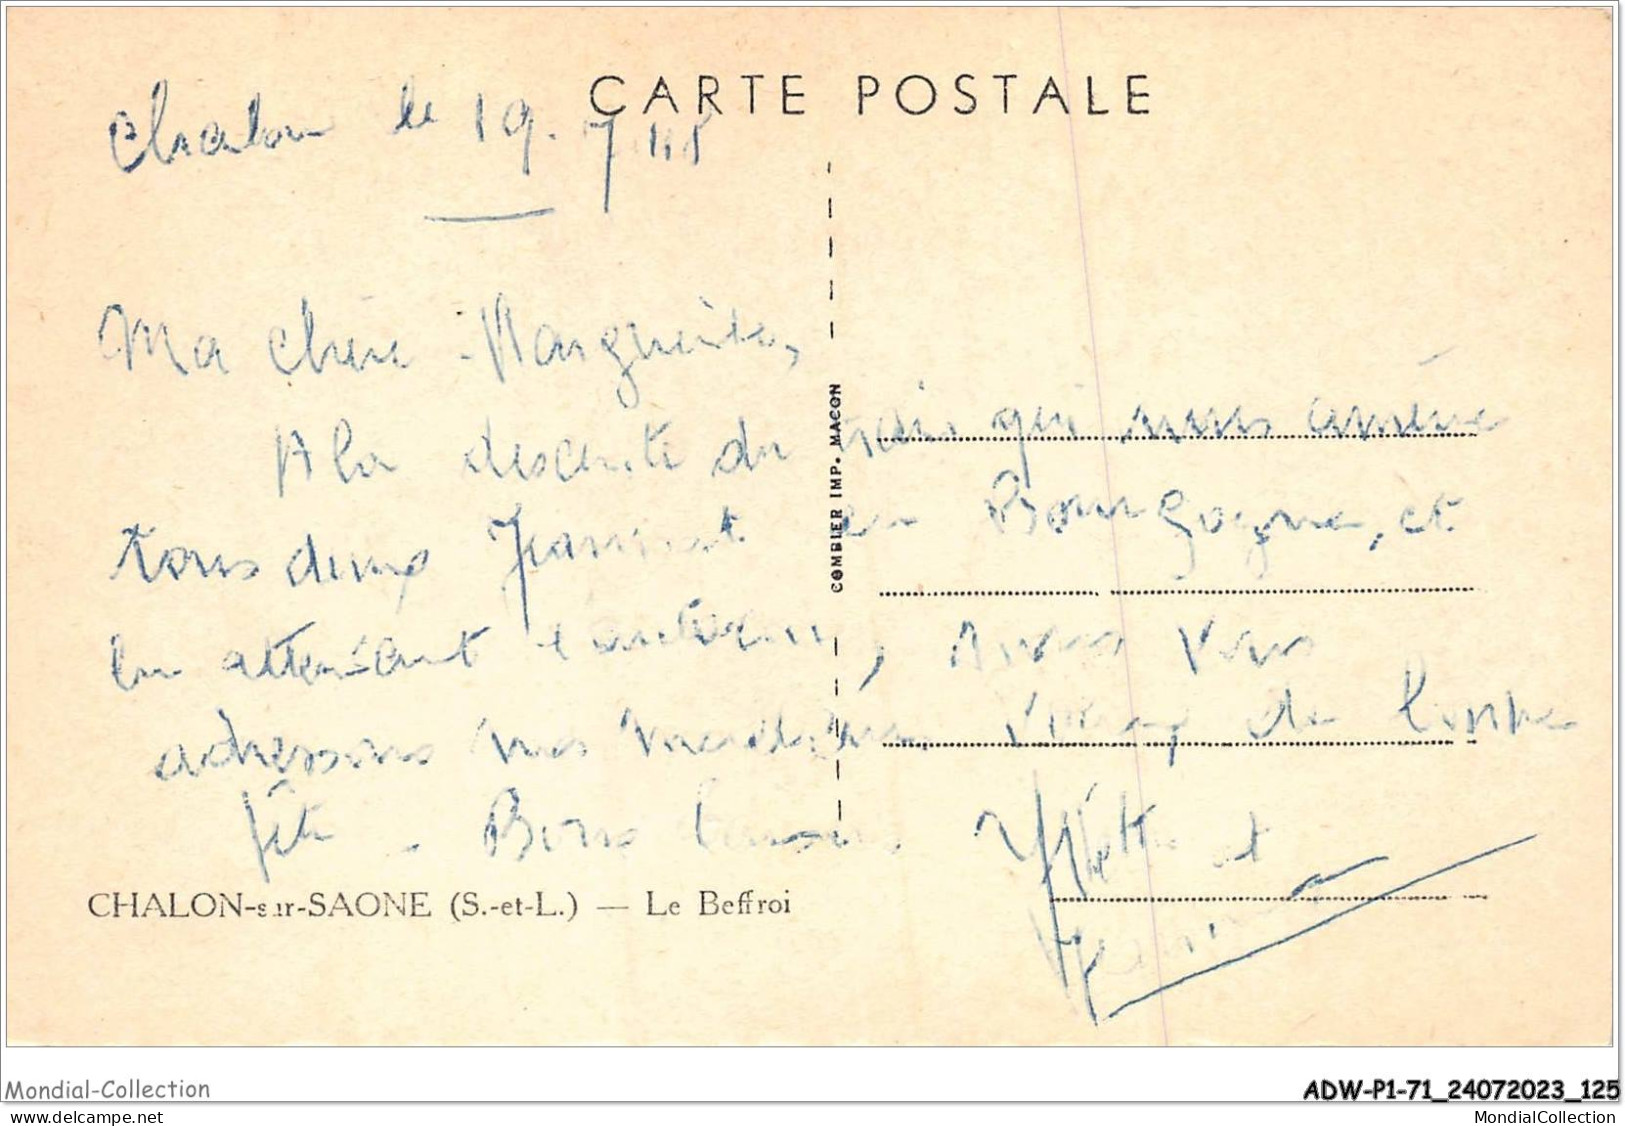 CARTE POSTALE
Chalon le 19.7
Ma chère Marguerite,
A la descente du train qui nous amène
tous deux Jeannot en Bourgogne, et
en attendant, nous vous
adressons nos vœux de bonne
fête. Bons baisers
et
COMBIER IMP. MACON
CHALON-sur-SAONE (S.-et-L.) — Le Beffroi
Mondial-Collection
ADW-P1-71_24072023_125
www.delcampe.net
MondialCollection